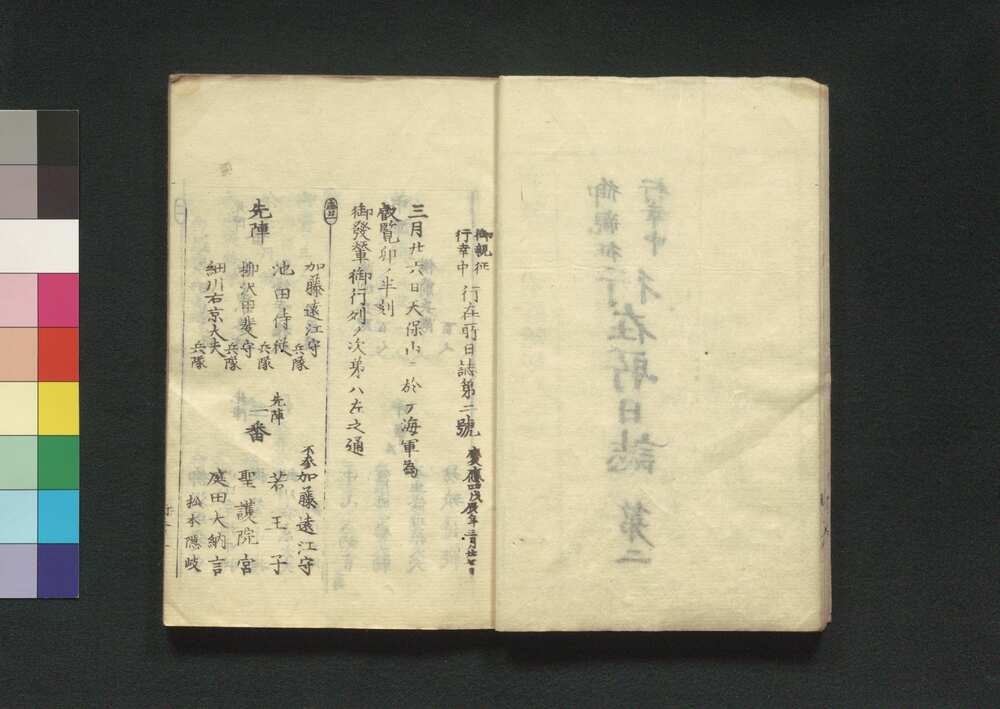 御親征
行幸中
行在所日誌第二號
慶應四戊辰年三月廿七日
三月廿六日天保山ニ於テ海軍爲
叡覧卯ノ半刻
御發輦御行列ノ次第ハ左之通
加藤遠江守
兵隊
不参加藤遠江守
先陣
池田侍従
兵隊
先陣
若王子
柳沢甲斐守
兵隊
一番
聖護院宮
細川右京大夫
兵隊
庭田大納言
松木隠岐
御親征
行幸中
行在所日誌
第二